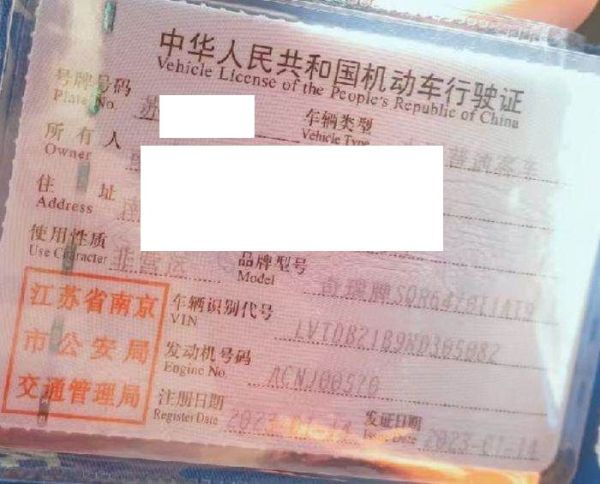 中华人民共和国机动车行驶证
Vehicle License of the People's Republic of China
号牌号码 苏
Plate No.
车辆类型 普通客车
Vehicle Type
所有人
Owner
住址 南
Address
使用性质 非营运
Use Character
品牌型号 奇瑞牌
Model
江苏省南京
市公安局
交通管理局
车辆识别代号
VIN LVTDB21B9ND305082
发动机号码
Engine No. ACNJ00520
注册日期
Register Date 2023-01-14
发证日期
Issue Date 2023-01-14